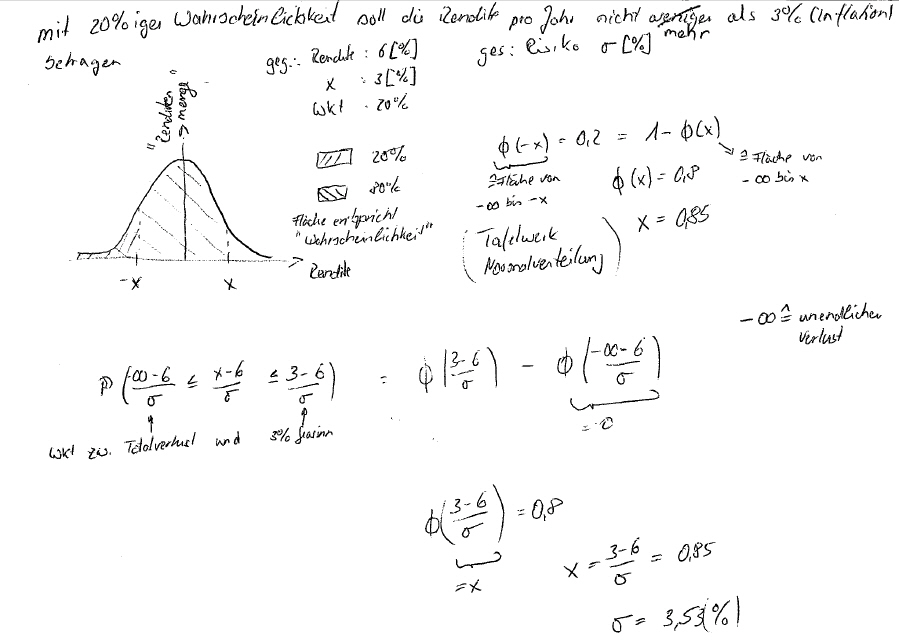 mit 20%iger Wahrscheinlichkeit soll die Rendite pro Jahr nicht weniger mehr als 3% (Inflation)
betragen
geg.: Rendite : 6[%]
x : 3[%]
Wkt : 20%
ges: Risiko σ [%]
"Renditen
menge"
20%
80%
Fläche entspricht
"Wahrscheinlichkeit"
-x
x
Rendite
ϕ(-x) = 0,2 = 1 - ϕ(x)
≙ Fläche von
-∞ bis -x
≙ Fläche von
-∞ bis x
ϕ(x) = 0,8
x = 0,85
(Tafelwerk
Normalverteilung)
-∞ ≙ unendlicher
Verlust
P(-∞-6/σ ≤ x-6/σ ≤ 3-6/σ) = ϕ(3-6/σ) - ϕ(-∞-6/σ)
= 0
Wkt zw. Totalverlust und 3% Gewinn
ϕ(3-6/σ) = 0,8
= x
x = 3-6/σ = 0,85
σ = 3,53[%]